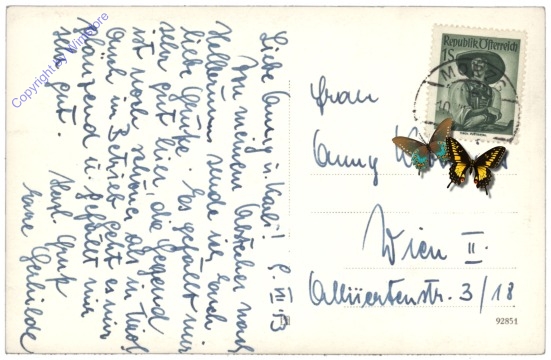 Liebe Anny u. Kasi!
8. VII 53
In meinem Urlaub nach
sende ich euch
liebe Grüße. Es gefällt mir
sehr gut hier, die Gegend
ist noch schöner als in Tirol
Auch im Betrieb geht es mir
glänzend u. gefällt mir
sehr gut.
Herzl. Gruß
eure Gerhilde
Republik Österreich
1S
Frau
Anny
Wien II.
3/18
92851
Copyright by WinStore